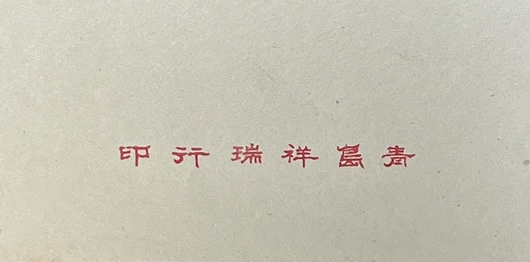 青島祥瑞行印